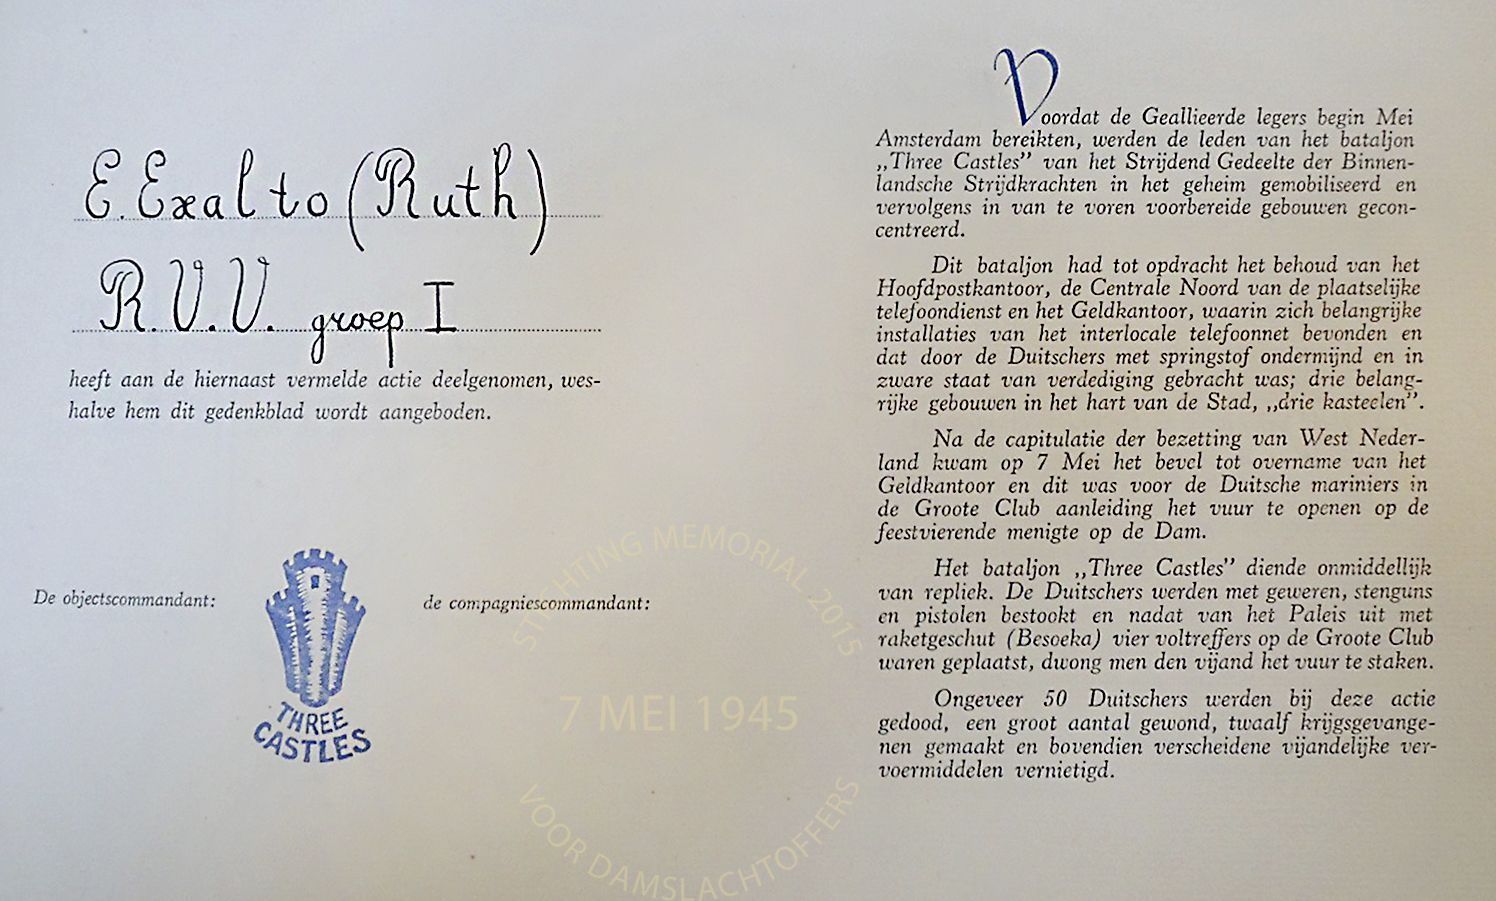 E. Exalto (Ruth)
R.V.V. groep I
heeft aan de hiernaast vermelde actie deelgenomen, wes-
halve hem dit gedenkblad wordt aangeboden.
De objectscommandant:
de compagniescommandant:
THREE
CASTLES
Voordat de Geallieerde legers begin Mei
Amsterdam bereikten, werden de leden van het bataljon
„Three Castles” van het Strijdend Gedeelte der Binnen-
landsche Strijdkrachten in het geheim gemobiliseerd en
vervolgens in van te voren voorbereide gebouwen gecon-
centreerd.
Dit bataljon had tot opdracht het behoud van het
Hoofdpostkantoor, de Centrale Noord van de plaatselijke
telefoondienst en het Geldkantoor, waarin zich belangrijke
installaties van het interlocale telefoonnet bevonden en
dat door de Duitschers met springstof ondermijnd en in
zware staat van verdediging gebracht was; drie belang-
rijke gebouwen in het hart van de Stad, „drie kasteelen”.
Na de capitulatie der bezetting van West Neder-
land kwam op 7 Mei het bevel tot overname van het
Geldkantoor en dit was voor de Duitsche mariniers in
de Groote Club aanleiding het vuur te openen op de
feestvierende menigte op de Dam.
Het bataljon „Three Castles” diende onmiddellijk
van repliek. De Duitschers werden met geweren, stenguns
en pistolen bestookt en nadat van het Paleis uit met
raketgeschut (Besoeka) vier voltreffers op de Groote Club
waren geplaatst, dwong men den vijand het vuur te staken.
Ongeveer 50 Duitschers werden bij deze actie
gedood, een groot aantal gewond, twaalf krijgsgevange-
nen gemaakt en bovendien verscheidene vijandelijke ver-
voermiddelen vernietigd.
STICHTING MEMORIAL 2015
7 MEI 1945
VOOR DAMSLACHTOFFERS